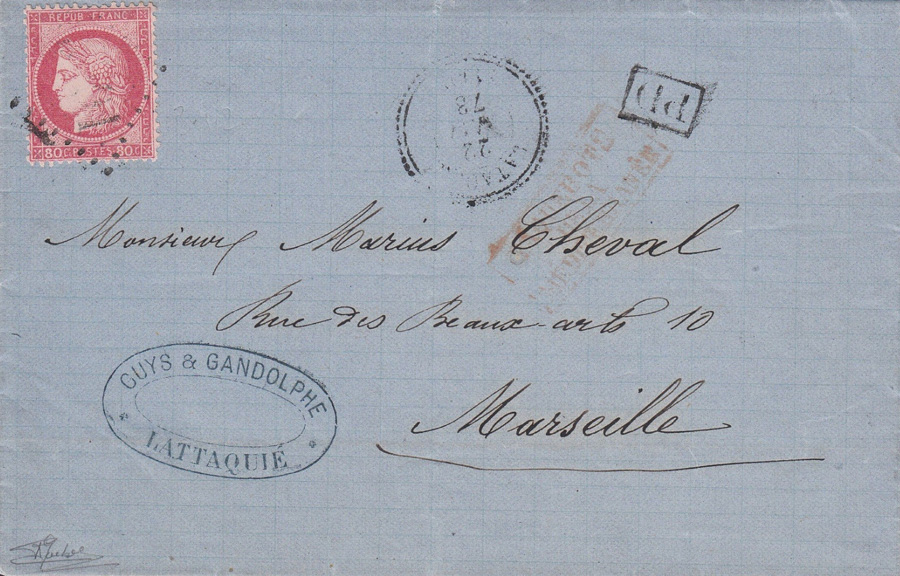 REPUB FRANC
80 C POSTES 80 C
LATTA
22
73
PD
Monsieur Marius Cheval
Rue des Beaux-arts 10
Marseille
GUYS & GANDOLPHE
LATTAQUIÉ